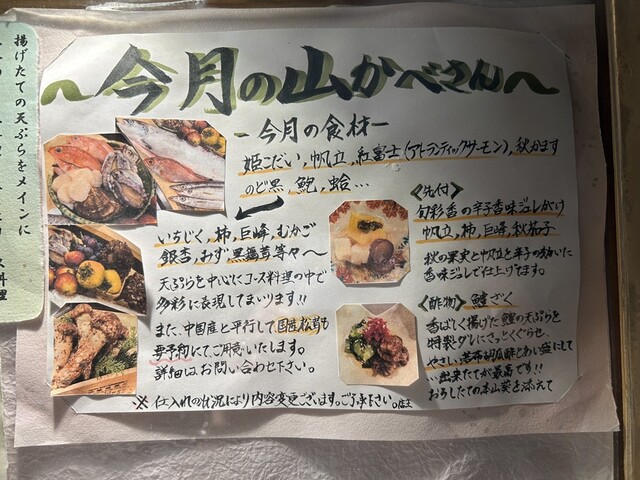 揚げたての天ぷらをメインに
料理
〜今月の山かべさん〜
-今月の食材-
姫こだい,帆立,紅富士(アトランティックサーモン),秋かます
のど黒,鮑,蛤…
いちじく,柿,巨峰,むかご
銀杏,あずき
天ぷらを中心にコース料理の中で
多彩に表現してまいります!!
また、中国産と平行して国産松茸も
要予約にてご用意いたします。
詳細はお問い合わせ下さい。
<先付>
旬彩香の辛子香味ジュレがけ
帆立,柿,巨峰,秋茄子
秋の果実と帆立と辛子の効いた
香味ジュレで仕上げてます。
<酢物> 鰻ざく
香ばしく揚げた鰻の天ぷらを
特製ダレにさっとくぐらせ、
やさしい若布胡瓜酢とあい盛にして
…出来たてが最高です!!
おろしたての本山葵を添えて
※仕入れの状況により内容変更ございます。ご了承下さい。店主